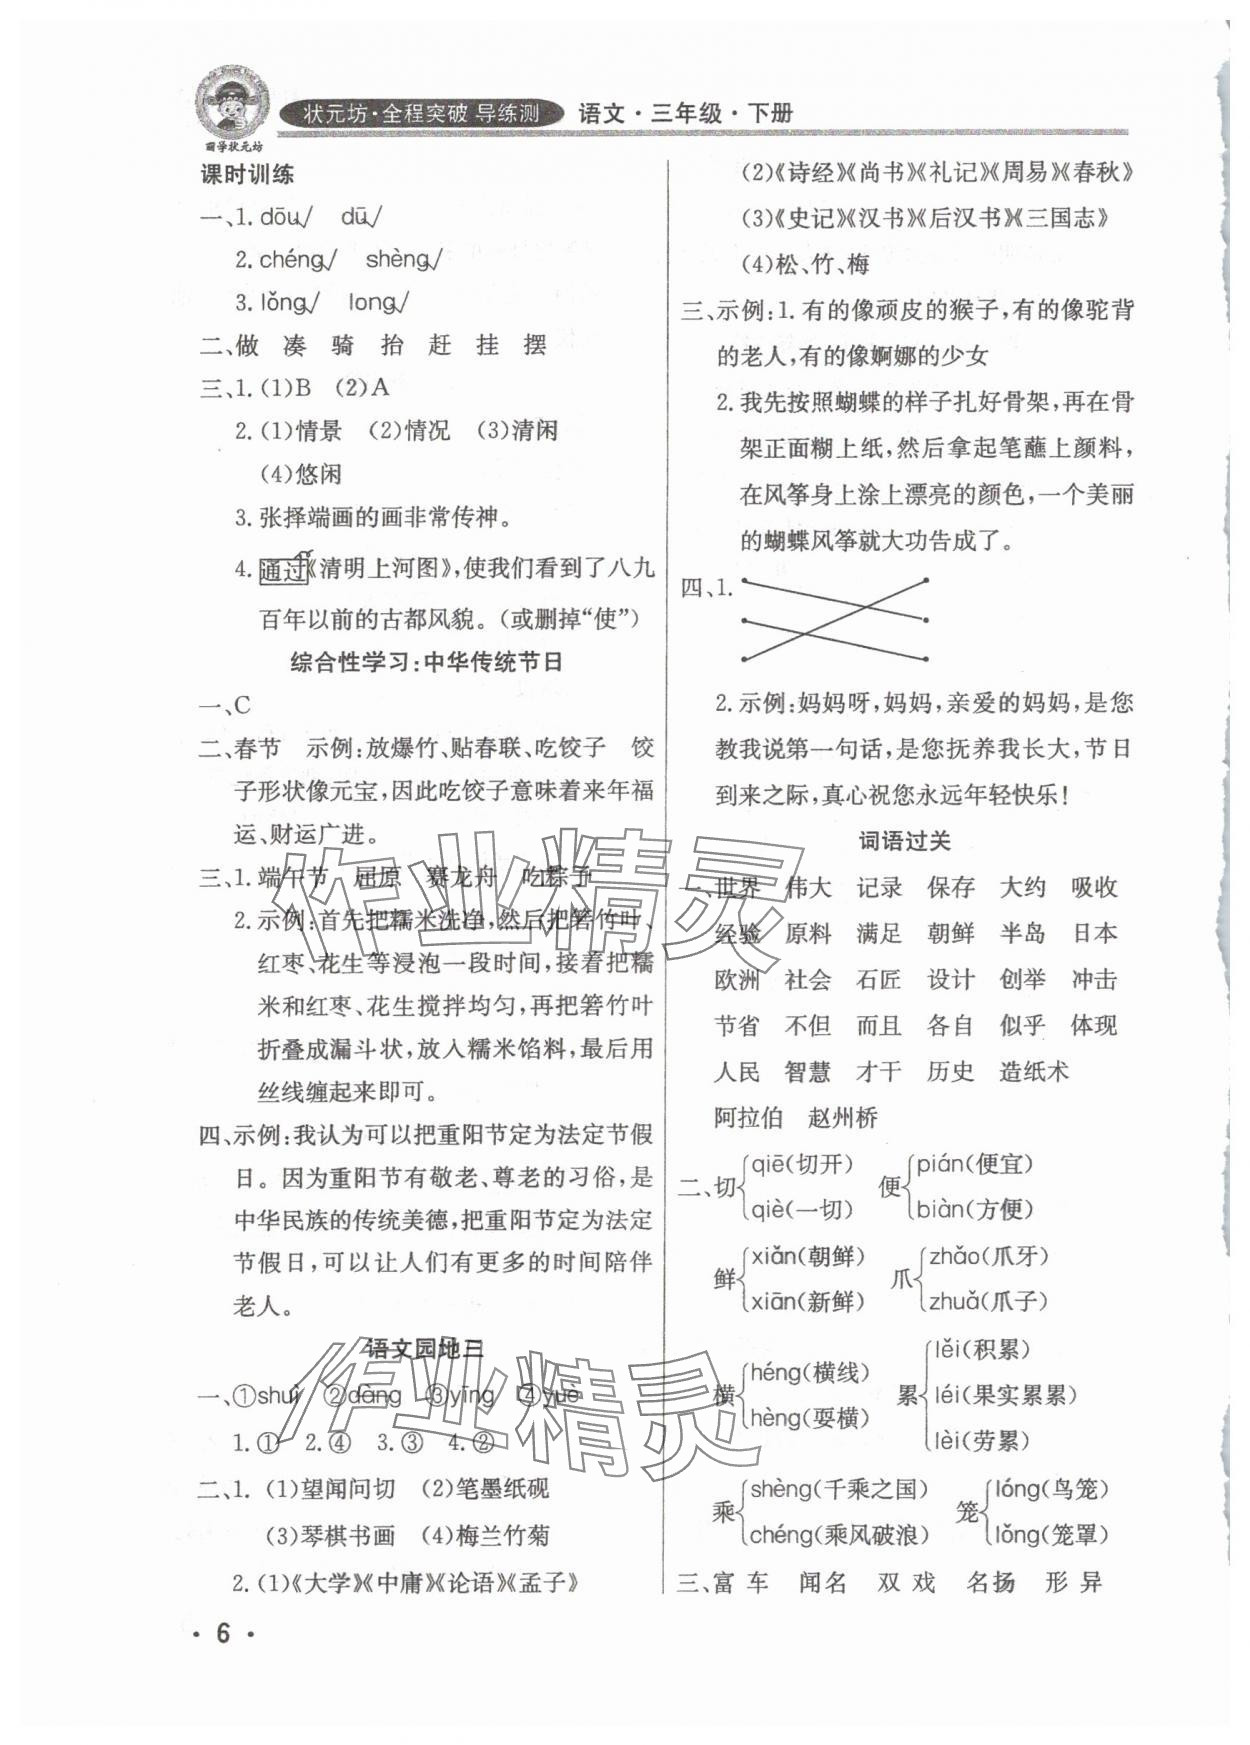 状元坊·全程突破 导练测 语文·三年级·下册
同学状元坊
课时训练
一、1. dōu✓ dū✓
2. chéng✓ shèng✓
3. lǒng✓ long✓
二、做 凑 骑 抬 赶 挂 摆
三、1. (1)B (2)A
2. (1)情景 (2)情况 (3)清闲
(4)悠闲
3. 张择端画的画非常传神。
4. 通过《清明上河图》,使我们看到了八九
百年以前的古都风貌。(或删掉“使”)
综合性学习:中华传统节日
一、C
二、春节 示例:放爆竹、贴春联、吃饺子 饺
子形状像元宝,因此吃饺子意味着来年福
运、财运广进。
三、1. 端午节 屈原 赛龙舟 吃粽子
2. 示例:首先把糯米洗净,然后把箬竹叶、
红枣、花生等浸泡一段时间,接着把糯
米和红枣、花生搅拌均匀,再把箬竹叶
折叠成漏斗状,放入糯米馅料,最后用
丝线缠起来即可。
四、示例:我认为可以把重阳节定为法定节假
日。因为重阳节有敬老、尊老的习俗,是
中华民族的传统美德,把重阳节定为法定
节假日,可以让人们有更多的时间陪伴
老人。
语文园地三
一、①shuì ②dàng ③yīng ④yuè
1. ① 2. ④ 3. ③ 4. ②
二、1. (1)望闻问切 (2)笔墨纸砚
(3)琴棋书画 (4)梅兰竹菊
2. (1)《大学》《中庸》《论语》《孟子》
(2)《诗经》《尚书》《礼记》《周易》《春秋》
(3)《史记》《汉书》《后汉书》《三国志》
(4)松、竹、梅
三、示例:1. 有的像顽皮的猴子,有的像驼背
的老人,有的像婀娜的少女
2. 我先按照蝴蝶的样子扎好骨架,再在骨
架正面糊上纸,然后拿起笔蘸上颜料,
在风筝身上涂上漂亮的颜色,一个美丽
的蝴蝶风筝就大功告成了。
四、1.
2. 示例:妈妈呀,妈妈,亲爱的妈妈,是您
教我说第一句话,是您抚养我长大,节日
到来之际,真心祝您永远年轻快乐!
词语过关
一、世界 伟大 记录 保存 大约 吸收
经验 原料 满足 朝鲜 半岛 日本
欧洲 社会 石匠 设计 创举 冲击
节省 不但 而且 各自 似乎 体现
人民 智慧 才干 历史 造纸术
阿拉伯 赵州桥
二、切 qiē(切开) qiè(一切) 便 pián(便宜) biàn(方便)
鲜 xiǎn(朝鲜) xiān(新鲜) 爪 zhǎo(爪牙) zhuǎ(爪子)
横 héng(横线) hèng(耍横) 累 lěi(积累) léi(果实累累) lèi(劳累)
乘 shèng(千乘之国) chéng(乘风破浪) 笼 lóng(鸟笼) lǒng(笼罩)
三、富 车 闻名 双 戏 名扬 形 异
· 6 ·
作业精灵
作业精灵